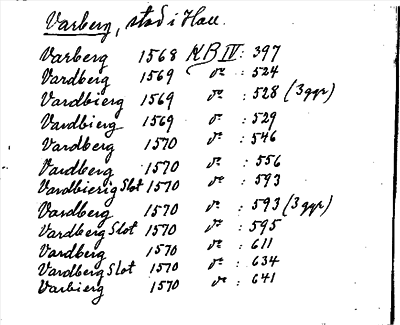 Varberg, stad i Hall.
Varberg 1568 KB IV: 397
Vardberg 1569 do : 524
Vardbierg 1569 do : 528 (3 ggr)
Vardbierg 1569 do : 529
Vardberg 1570 do : 546
Vardberg 1570 do : 556
Vardbierig Slot 1570 do : 593
Vardberg 1570 do : 593 (3 ggr)
Vardberg Slot 1570 do : 595
Vardberg 1570 do : 611
Vardberg Slot 1570 do : 634
Varbierg 1570 do : 641